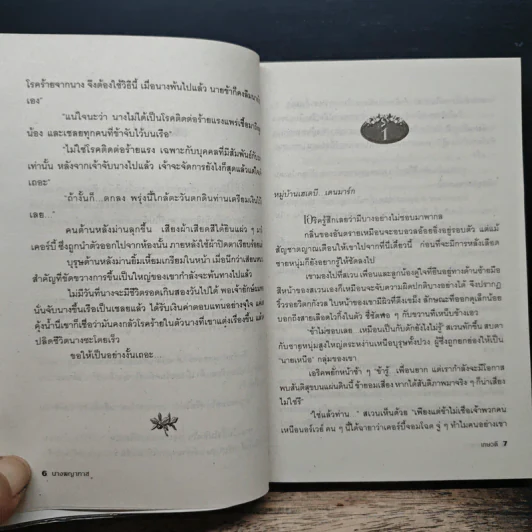 โรคร้ายจากนาง จึงต้องใช้วิธีนี้ เมื่อนางพ้นไปแล้ว นายข้าก็คงลืมนาง
เอง"
"แน่ใจนะว่า นางไม่ได้เป็นโรคติดต่อร้ายแรงแพร่เชื้อมา
น้อง และเชลยทุกคนที่ข้าจับไว้บนเรือ"
"ไม่ใช่โรคติดต่อร้ายแรง เฉพาะกับบุคคลที่มีสัมพันธ์กับ
เท่านั้น หลังจากเจ้าจับนางไปแล้ว เจ้าจะจัดการยังไงก็สุดแล้วแต่
เถอะ"
"ถ้างั้นก็...ตกลง พรุ่งนี้ใกล้ตะวันตกดินท่านเตรียมเงินไว้
เลย..."
คนด้านหลังม่านลุกขึ้น เสียงผ้าเสียดสีได้ยินแผ่ว ๆ
เคอร์บี้ ซึ่งถูกนำตัวออกไปจากห้องนั้น ภายหลังใช้ผ้าปิดตาเรียบร้อย
บุรุษด้านหลังม่านยิ้มเหี้ยมเกรียมในหน้า เมื่อนึกว่าเสี้ยน
สำคัญที่ขัดขวางการขึ้นเป็นใหญ่ของเขากำลังจะพ้นทางไปแล้ว
ไม่มีวันที่นางจะมีชีวิตรอดเกินสองวันไปได้ พอเจ้ายักษ์
นั่นจับนางขึ้นเรือเป็นเชลยแล้ว ได้รับเงินค่าตอบแทนอย่างจุใจ
คุ้งน้ำนี้เขาก็เชื่อว่ามันคงกลัวโรคร้ายในตัวนางที่เขาแต่งเรื่องขึ้น
ปลิดชีวิตนางซะโดยเร็ว
ขอให้เป็นอย่างงั้นเถอะ...
6 นางสกุาทาส
1
หมู่บ้านเฮเดบี...เดนมาร์ก
เอริครู้สึกเลยว่ามีบางอย่างไม่ชอบมาพากล
กลิ่นของอันตรายเหมือนจะอบอวลห้อยอึ้งอยู่รอบตัว แต่แม้
สัญชาตญาณเตือนให้เขาไปจากที่นี่เดี๋ยวนี้ ก่อนที่จะมีการหลั่งเลือด
ชายหนุ่มก็ยังอยากให้ชัดลงไป
เขามองไปที่สเวน เพื่อนและลูกน้องคู่ใจที่ยืนอยู่ทางด้านซ้ายมือ
สีหน้าของสเวนเองก็เหมือนจะจับความผิดปกติบางอย่างได้ จึงปรากฏ
ริ้วรอยวิตกกังวล ใบหน้าของเขามีผิวที่ตึงเข้ม ลักษณะที่ออกดุเล็กน้อย
บอกถึงสายเลือดไวกิ้งเต็มตัว ชี้ชัดพอ ๆ กับขวานที่เหน็บข้างเอว
"ข้าไม่ชอบเลย เหมือนเป็นกับดักยังไงไม่รู้" สเวนทักขึ้น สบตา
กับชายหนุ่มสูงใหญ่ตระหง่านเหนือบุรุษทั้งปวง ผู้ซึ่งถูกยกย่องให้เป็น
"นายเหนือ" กลุ่มของเขา
เอริคพยักหน้าช้า ๆ "ข้ารู้...เพื่อนยาก แต่เรากำลังจะมีโอกาส
พบสันติสุขบนแผ่นดินนี้ ข้ายอมเสี่ยง หากได้สันติภาพมาจริง ๆ ก็น่าเสี่ยง
ไม่ใช่รึ"
"ใช่แล้วท่าน..." สเวนเห็นด้วย "เพียงแต่ข้าไม่เชื่อเจ้าพวกคน
เหนือนอร์เวย์ คน ๆ นี้ได้ฉายาว่าเคอร์บี้จอมโฉด จู่ ๆ ทำไมคนอย่างเขา
เกษวดี 7